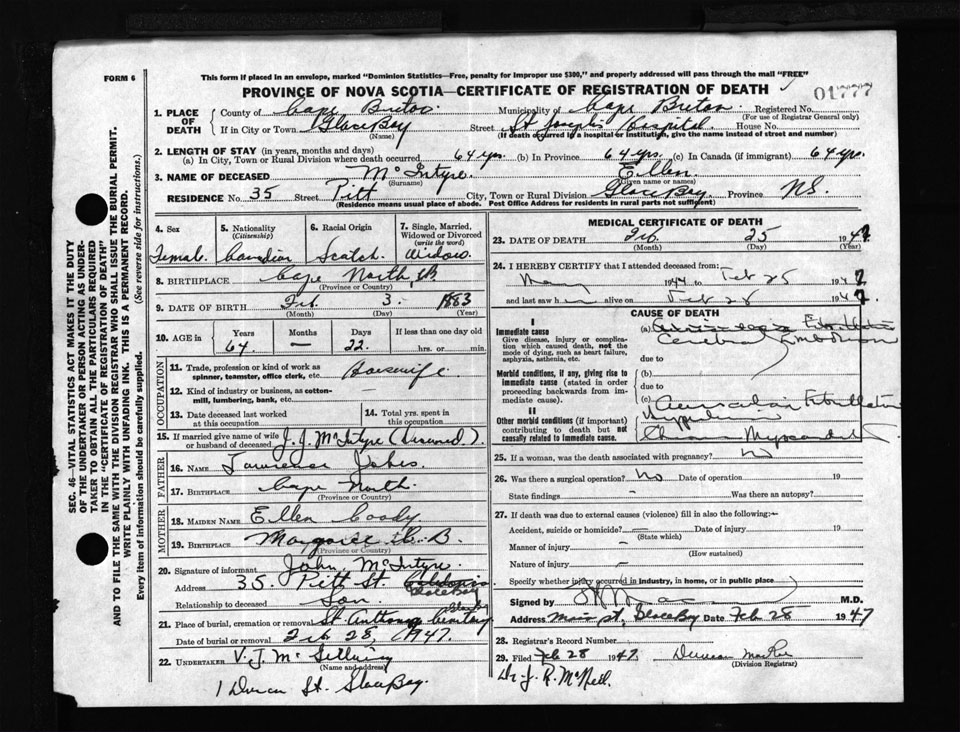 This form if placed in an envelope, marked "Dominion Statistics—Free, penalty for improper use $300," and properly addressed will pass through the mail "FREE"
FORM 6
PROVINCE OF NOVA SCOTIA—CERTIFICATE OF REGISTRATION OF DEATH
01777
1. PLACE OF DEATH
County of Cape Breton Municipality of Cape Breton Registered No.
(For use of Registrar General only)
If in City or Town Glace Bay Street St Joseph's Hospital House No.
(Name) (If death occurred in a hospital or institution, give the name instead of street and number)
2. LENGTH OF STAY (in years, months and days)
(a) In City, Town or Rural Division where death occurred 64 yrs. (b) In Province 64 yrs. (c) In Canada (if immigrant) 64 yrs.
3. NAME OF DECEASED McIntyre Ellen
(Surname) (Given name or names)
RESIDENCE No. 35 Street Pitt City, Town or Rural Division Glace Bay Province N.S.
(Residence means usual place of abode. Post Office Address for residents in rural parts not sufficient)
4. Sex Female
5. Nationality (Citizenship) Canadian
6. Racial Origin Scotch
7. Single, Married, Widowed or Divorced (write the word) Widow
8. BIRTHPLACE Cape North, CB
(Province or Country)
9. DATE OF BIRTH Feb. 3. 1883
(Month) (Day) (Year)
10. AGE in Years Months Days If less than one day old
64 — 22 hrs. or min.
OCCUPATION
11. Trade, profession or kind of work as spinner, teamster, office clerk, etc. Housewife
12. Kind of industry or business, as cotton-mill, lumbering, bank, etc. —
13. Date deceased last worked at this occupation
14. Total yrs. spent in this occupation
15. If married give name of wife or husband of deceased J. J. McIntyre (Deceased).
FATHER
16. NAME Lawrence
17. BIRTHPLACE Cape North
(Province or Country)
MOTHER
18. MAIDEN NAME Ellen Coady
19. BIRTHPLACE Margaree C. B.
(Province or Country)
20. Signature of informant John McIntyre
Address 35. Pitt St. Glace Bay
Relationship to deceased Son
21. Place of burial, cremation or removal St. Anthony Cemetery
Date of burial or removal Feb 28, 1947.
22. UNDERTAKER V. J. McGillivray
(Name and address)
1 Duncan St. Glace Bay.
MEDICAL CERTIFICATE OF DEATH
23. DATE OF DEATH Feb. 25 1947
(Month) (Day) (Year)
24. I HEREBY CERTIFY that I attended deceased from:
May 1944 to Feb 25 1947
and last saw h alive on Feb 1947
CAUSE OF DEATH
I
Immediate cause
Give disease, injury or complication which caused death, not the mode of dying, such as heart failure, asphyxia, asthenia, etc.
(a) Cerebral Embolism
due to
Morbid conditions, if any, giving rise to immediate cause (stated in order proceeding backwards from immediate cause).
(b)
due to
(c) Auricular Fibrillation
II
Other morbid conditions (if important) contributing to death but not causally related to immediate cause.
25. If a woman, was the death associated with pregnancy? No
26. Was there a surgical operation? No Date of operation 19
State findings — Was there an autopsy?
27. If death was due to external causes (violence) fill in also the following:—
Accident, suicide or homicide? — Date of injury 19
(State which)
Manner of injury —
(How sustained)
Nature of injury —
Specify whether injury occurred in industry, in home, or in public place
Signed by M.D.
Address Main St, Glace Bay Date Feb 28 1947
28. Registrar's Record Number
29. Filed Feb 28 1947 Duncan
(Division Registrar)
Dr. J. R. McNeil.
SEC. 46—VITAL STATISTICS ACT MAKES IT THE DUTY
OF THE UNDERTAKER OR PERSON ACTING AS UNDER-
TAKER TO OBTAIN ALL THE PARTICULARS REQUIRED
IN THE "CERTIFICATE OF REGISTRATION OF DEATH"
AND TO FILE THE SAME WITH THE DIVISION REGISTRAR WHO SHALL ISSUE THE BURIAL PERMIT.
WRITE PLAINLY WITH UNFADING INK. THIS IS A PERMANENT RECORD.
Every item of information should be carefully supplied. (See reverse side for instructions.)